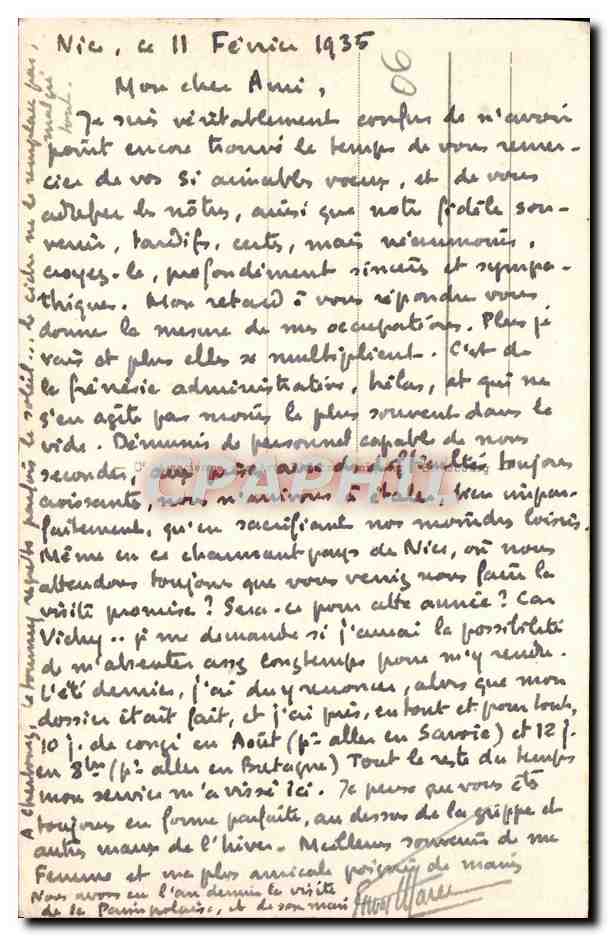 Nice, ce 11 Février 1935
Mon cher Ami,
Je suis véritablement confus de n'avoir
point encore trouvé le temps de vous remer-
cier de vos si aimables vœux, et de vous
adresser les nôtres, ainsi que notre fidèle sou-
venir, tardifs, certes, mais néanmoins,
croyez-le, profondément sincères et sympa-
thiques. Mon retard à vous répondre vous
donne la mesure de mes occupations. Plus je
vais et plus elles se multiplient. C'est de
la frénésie administrative, hélas, et qui ne
s'en agite pas moins le plus souvent dans le
vide. Démunis de personnel capable de nous
seconder, aux prises avec des difficultés toujours
croissantes, nous n'arrivons à étaler, bien impar-
faitement, qu'en sacrifiant nos moindres loisirs.
Même en ce charmant pays de Nice, où nous
attendons toujours que vous veniez nous faire la
visite promise? Sera-ce pour cette année? Car
Vichy.. je me demande si j'aurai la possibilité
de m'absenter assez longtemps pour m'y rendre.
L'été dernier, j'ai du y renoncer, alors que mon
dossier était fait, et j'ai pris, en tout et pour tout,
10 j. de congé en Août (pr aller en Savoie) et 12 j.
en 8bre (pr aller en Bretagne) Tout le reste du temps
mon service m'a vissé ici. Je pense que vous êtes
toujours en forme parfaite, au dessus de la grippe et
autres maux de l'hiver. Meilleurs souvenirs de ma
Femme et ma plus amicale poignée de mains
Nous avons eu l'an dernier la visite
de la Paimpolaise, et de son mari
A Cherbourg, le tournuy regrette parfois le soleil... le cidre ne le remplace pas,
malgré
tout.
06
CPAPHIL